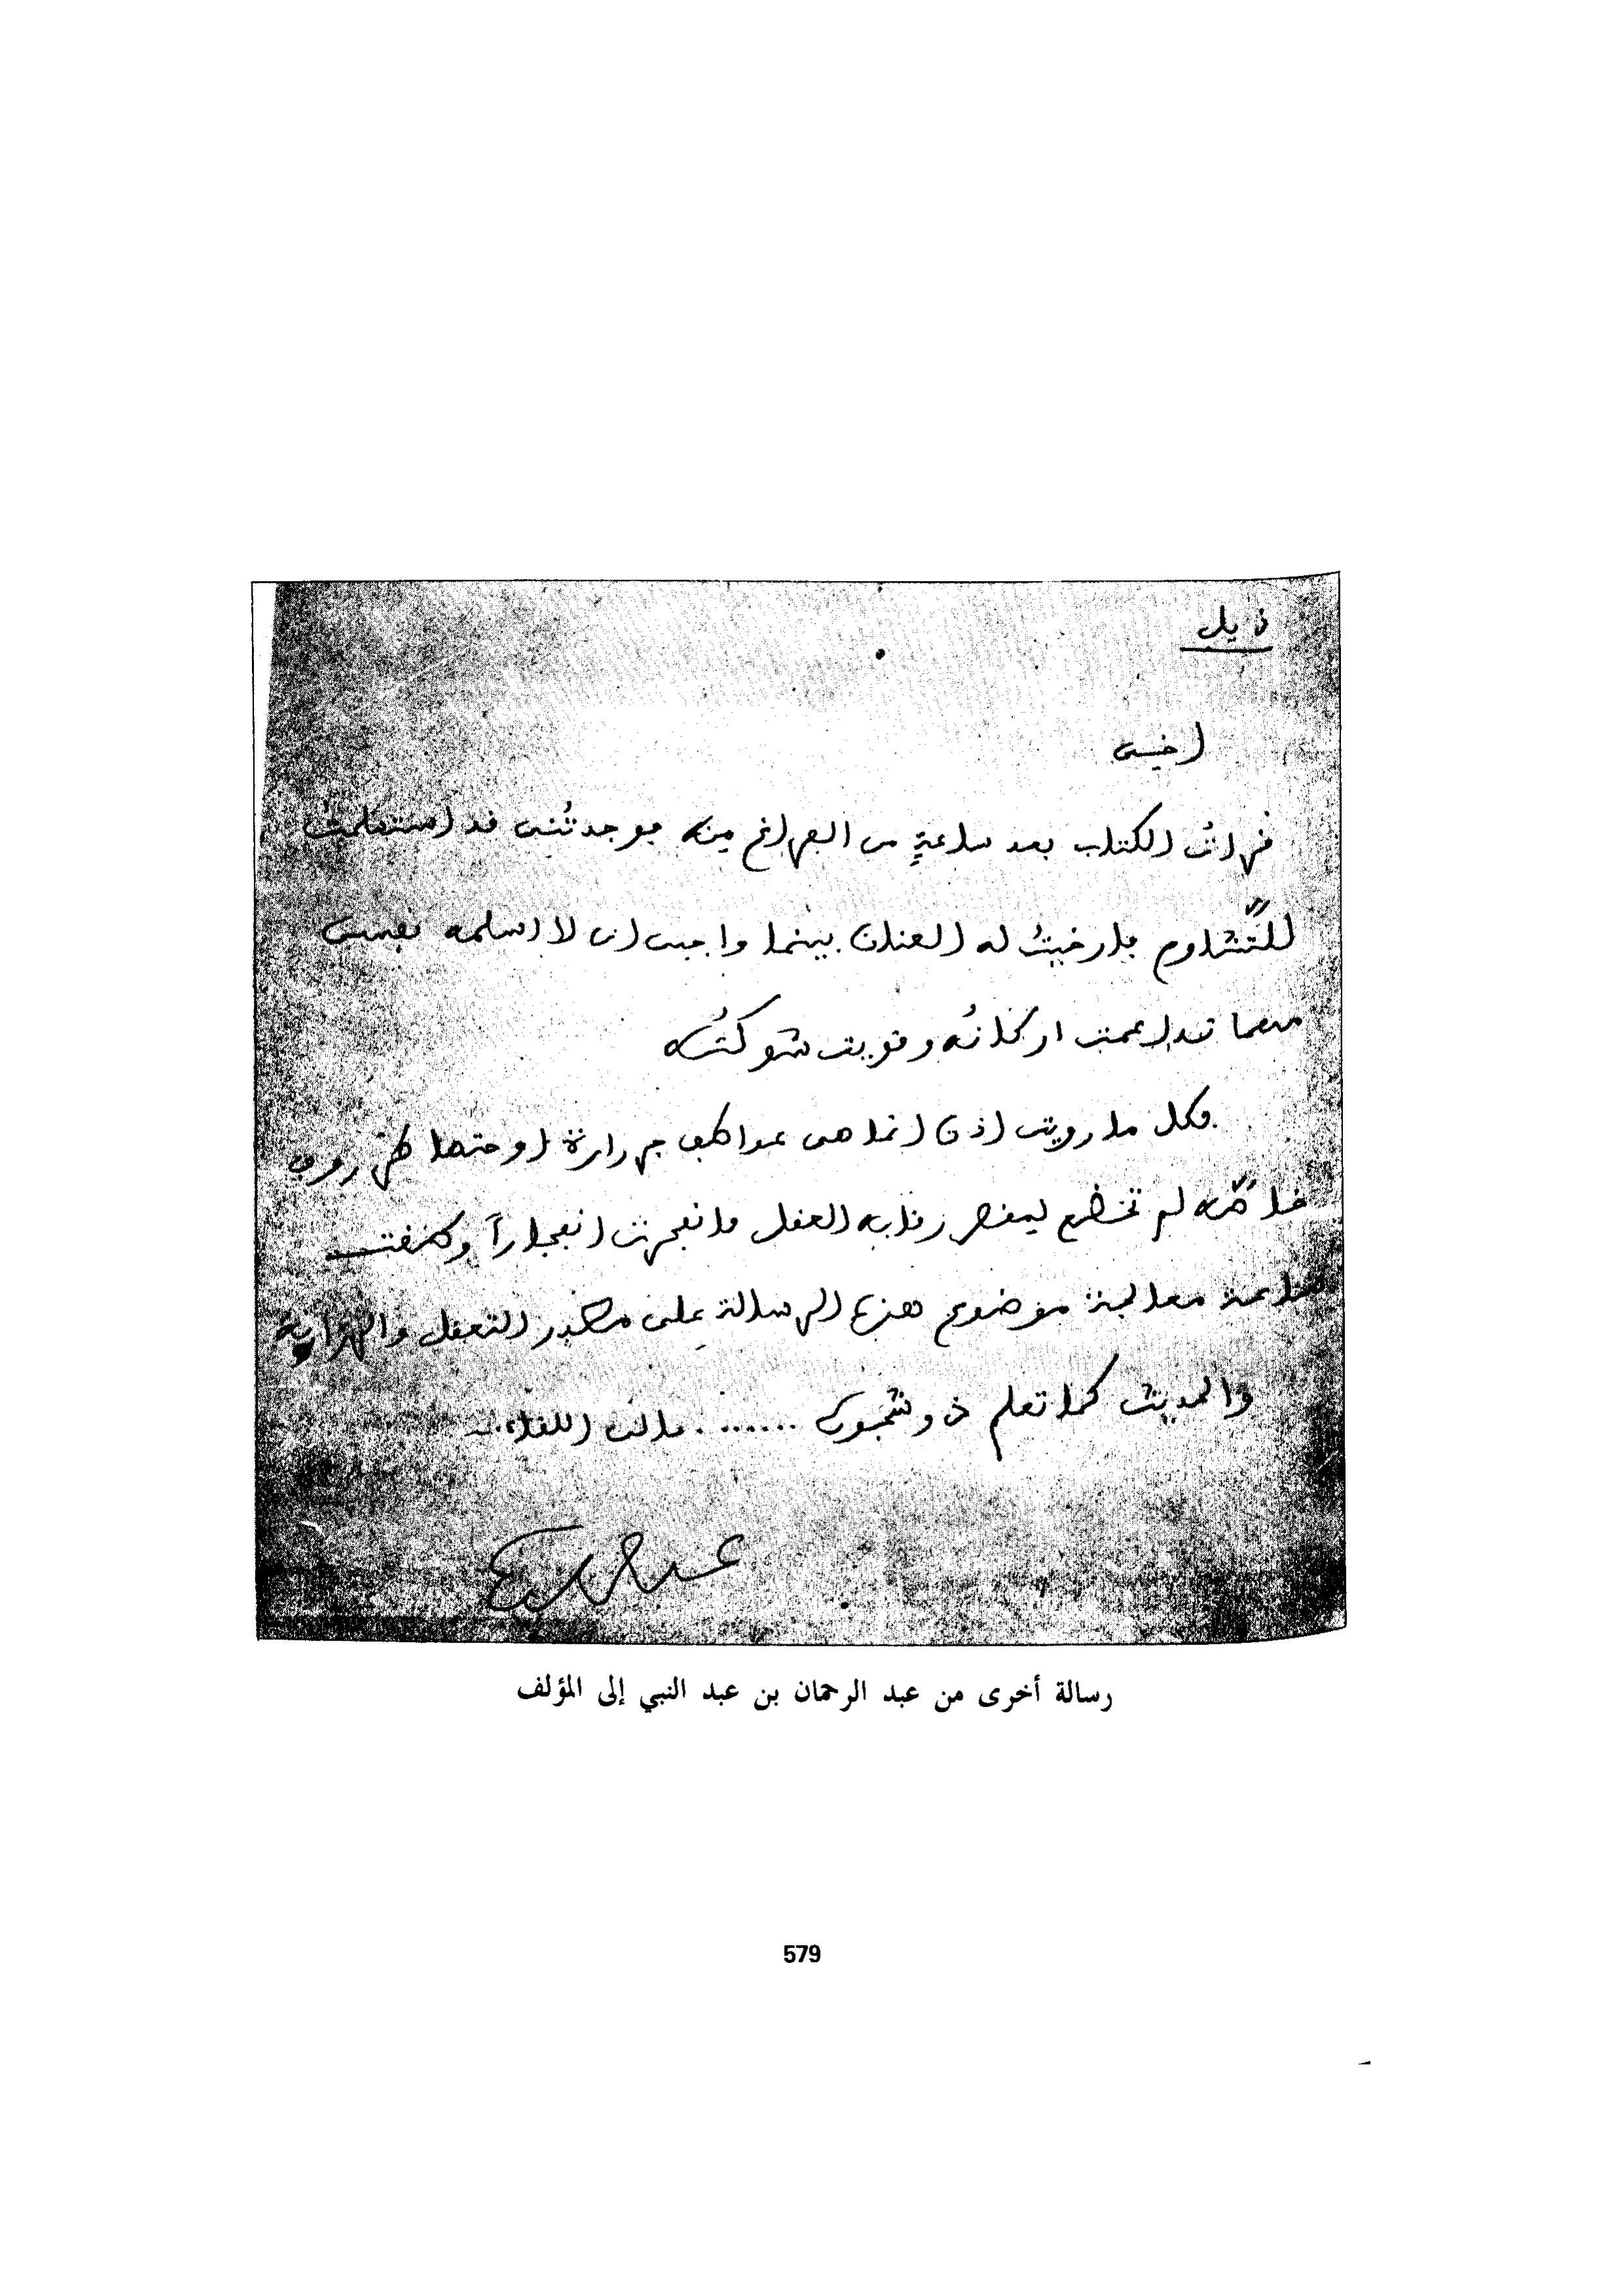 ذيل
أخي
قرأت الكتاب بعد ساعةٍ من الفراغ منه فوجدتُني قد استسلمتُ
للتشاؤم فأرخيتُ له العنان بينما واجبي ان لا اسلمه نفسي
مهما تدعمت اركانُه وقويت شوكتُه
فكل ما رويت اذن انما هي عواطف جرارة اوحتها ظروف
خاصّة لم تخضع ليقص رقابه العقل فانفجرت انفجاراً وكفت
ساعة معالجة موضوع هذه الرسالة على مصير التعقل والهداية
والحديث كما تعلم ذو شجون ....... فالى اللقاء
رسالة أخرى من عبد الرحمان بن عبد النبي إلى المؤلف
579